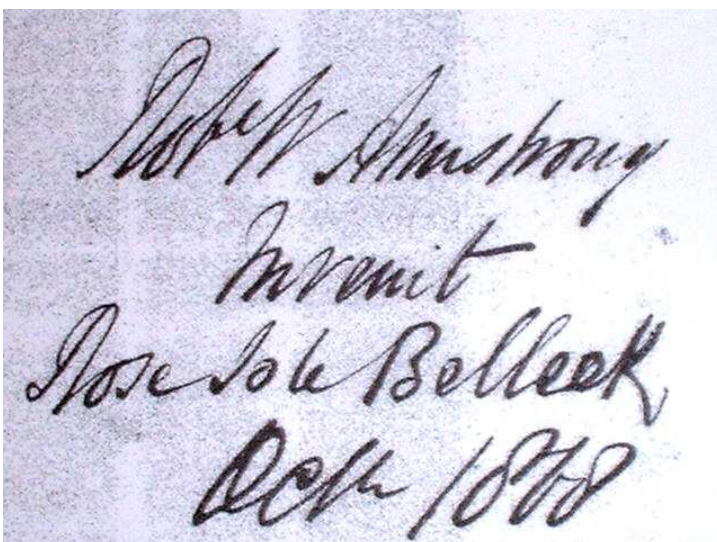 Robt W Armstrong
Invenit
Rose Isle Belleek
Octr 1868